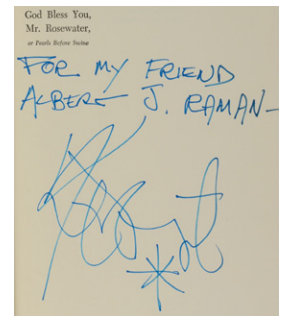 God Bless You,
Mr. Rosewater,
or Pearls Before Swine
FOR MY FRIEND
ALBERT J. RAMAN—